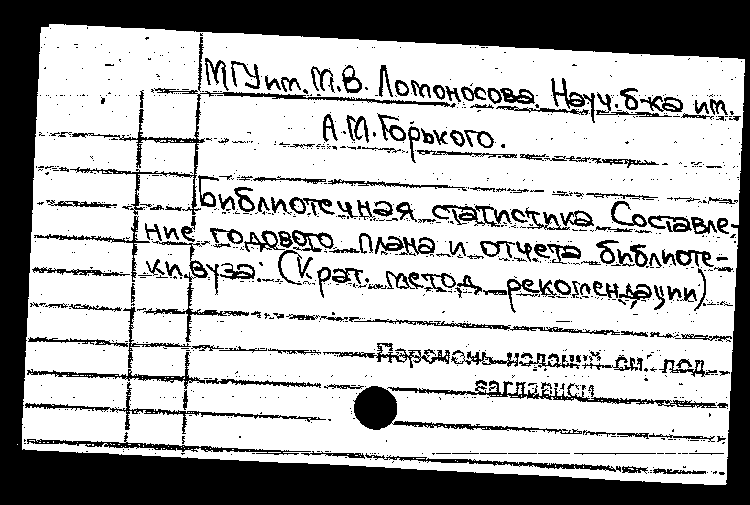 МГУ им. М.В. Ломоносова. Науч. б-ка им.
А.М. Горького.
Библиотечная статистика. Составле-
ние годового плана и отчета библиоте-
ки вуза: (Крат. метод. рекомендации)
Перечень изданий см. под
заглавием